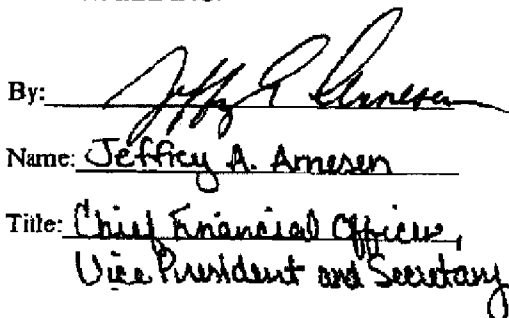 By: Jeffrey A Arnesen
Name: Jeffrey A. Arnesen
Title: Chief Financial Officer,
Vice President and Secretary